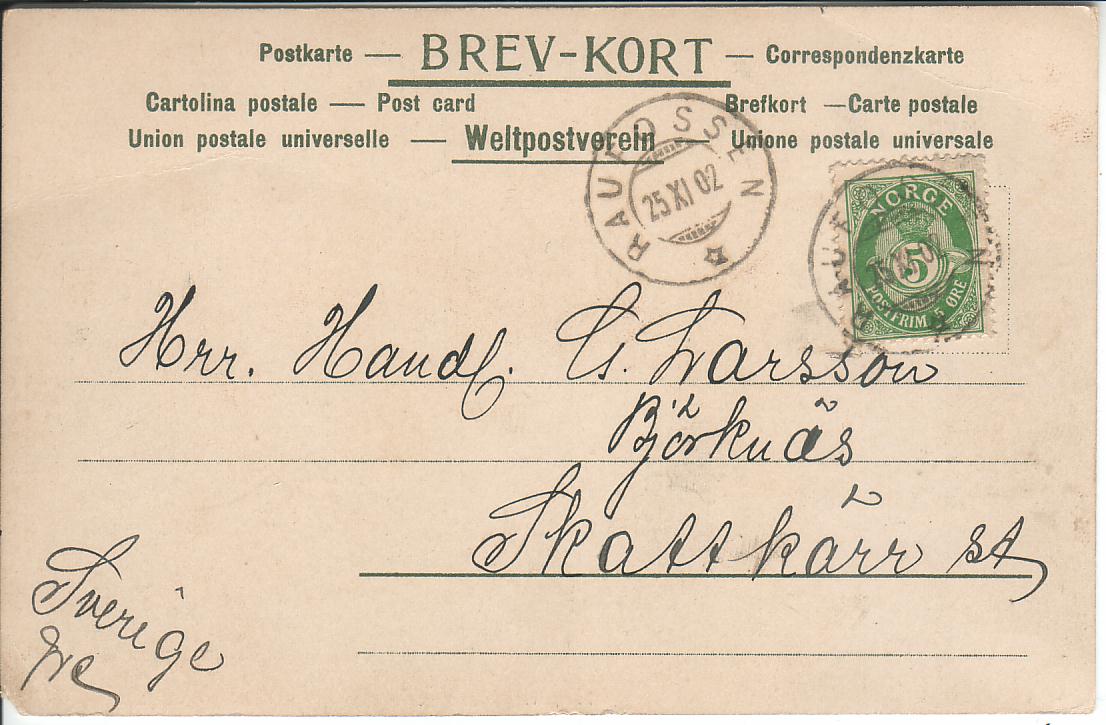 Postkarte — BREV-KORT — Correspondenzkarte
Cartolina postale — Post card Brefkort — Carte postale
Union postale universelle — Weltpostverein — Unione postale universale
RAUFOSSEN
25 XI 02
NORGE
5
POSTFRIM. 5 ØRE
Hrr. Handl. G. Larsson
Björknäs
Skattkärr st
Sverige